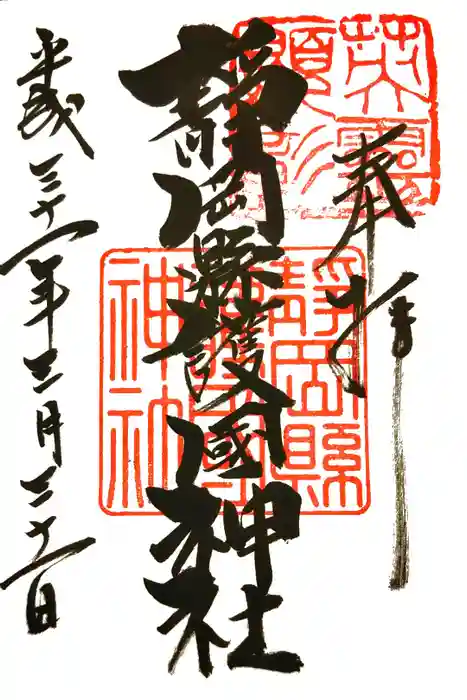 奉拝
靜岡縣護國神社
平成三十一年三月三十一日
英霊顕彰
靜岡縣護國神社